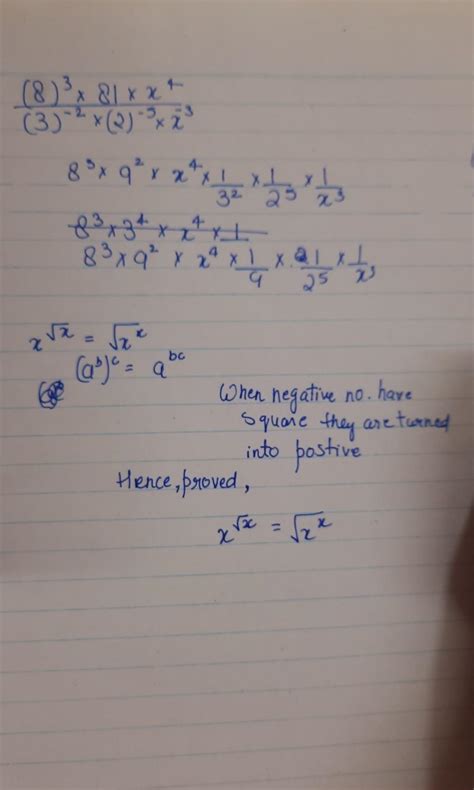 (8)³ × 81 × x⁴
(3)⁻² × (2)⁻⁵ × x⁻³
8³ × 9² × x⁴ × 1/3² × 1/2⁵ × 1/x³
8³ × 3⁴ × x⁴ × 1
8³ × 9² × x⁴ × 1/9 × 1/2⁵ × 1/x³
x^√x = √x^x
(a^b)^c = a^bc
When negative no. have
square they are turned
into postive
Hence, proved,
x^√x = √x^x